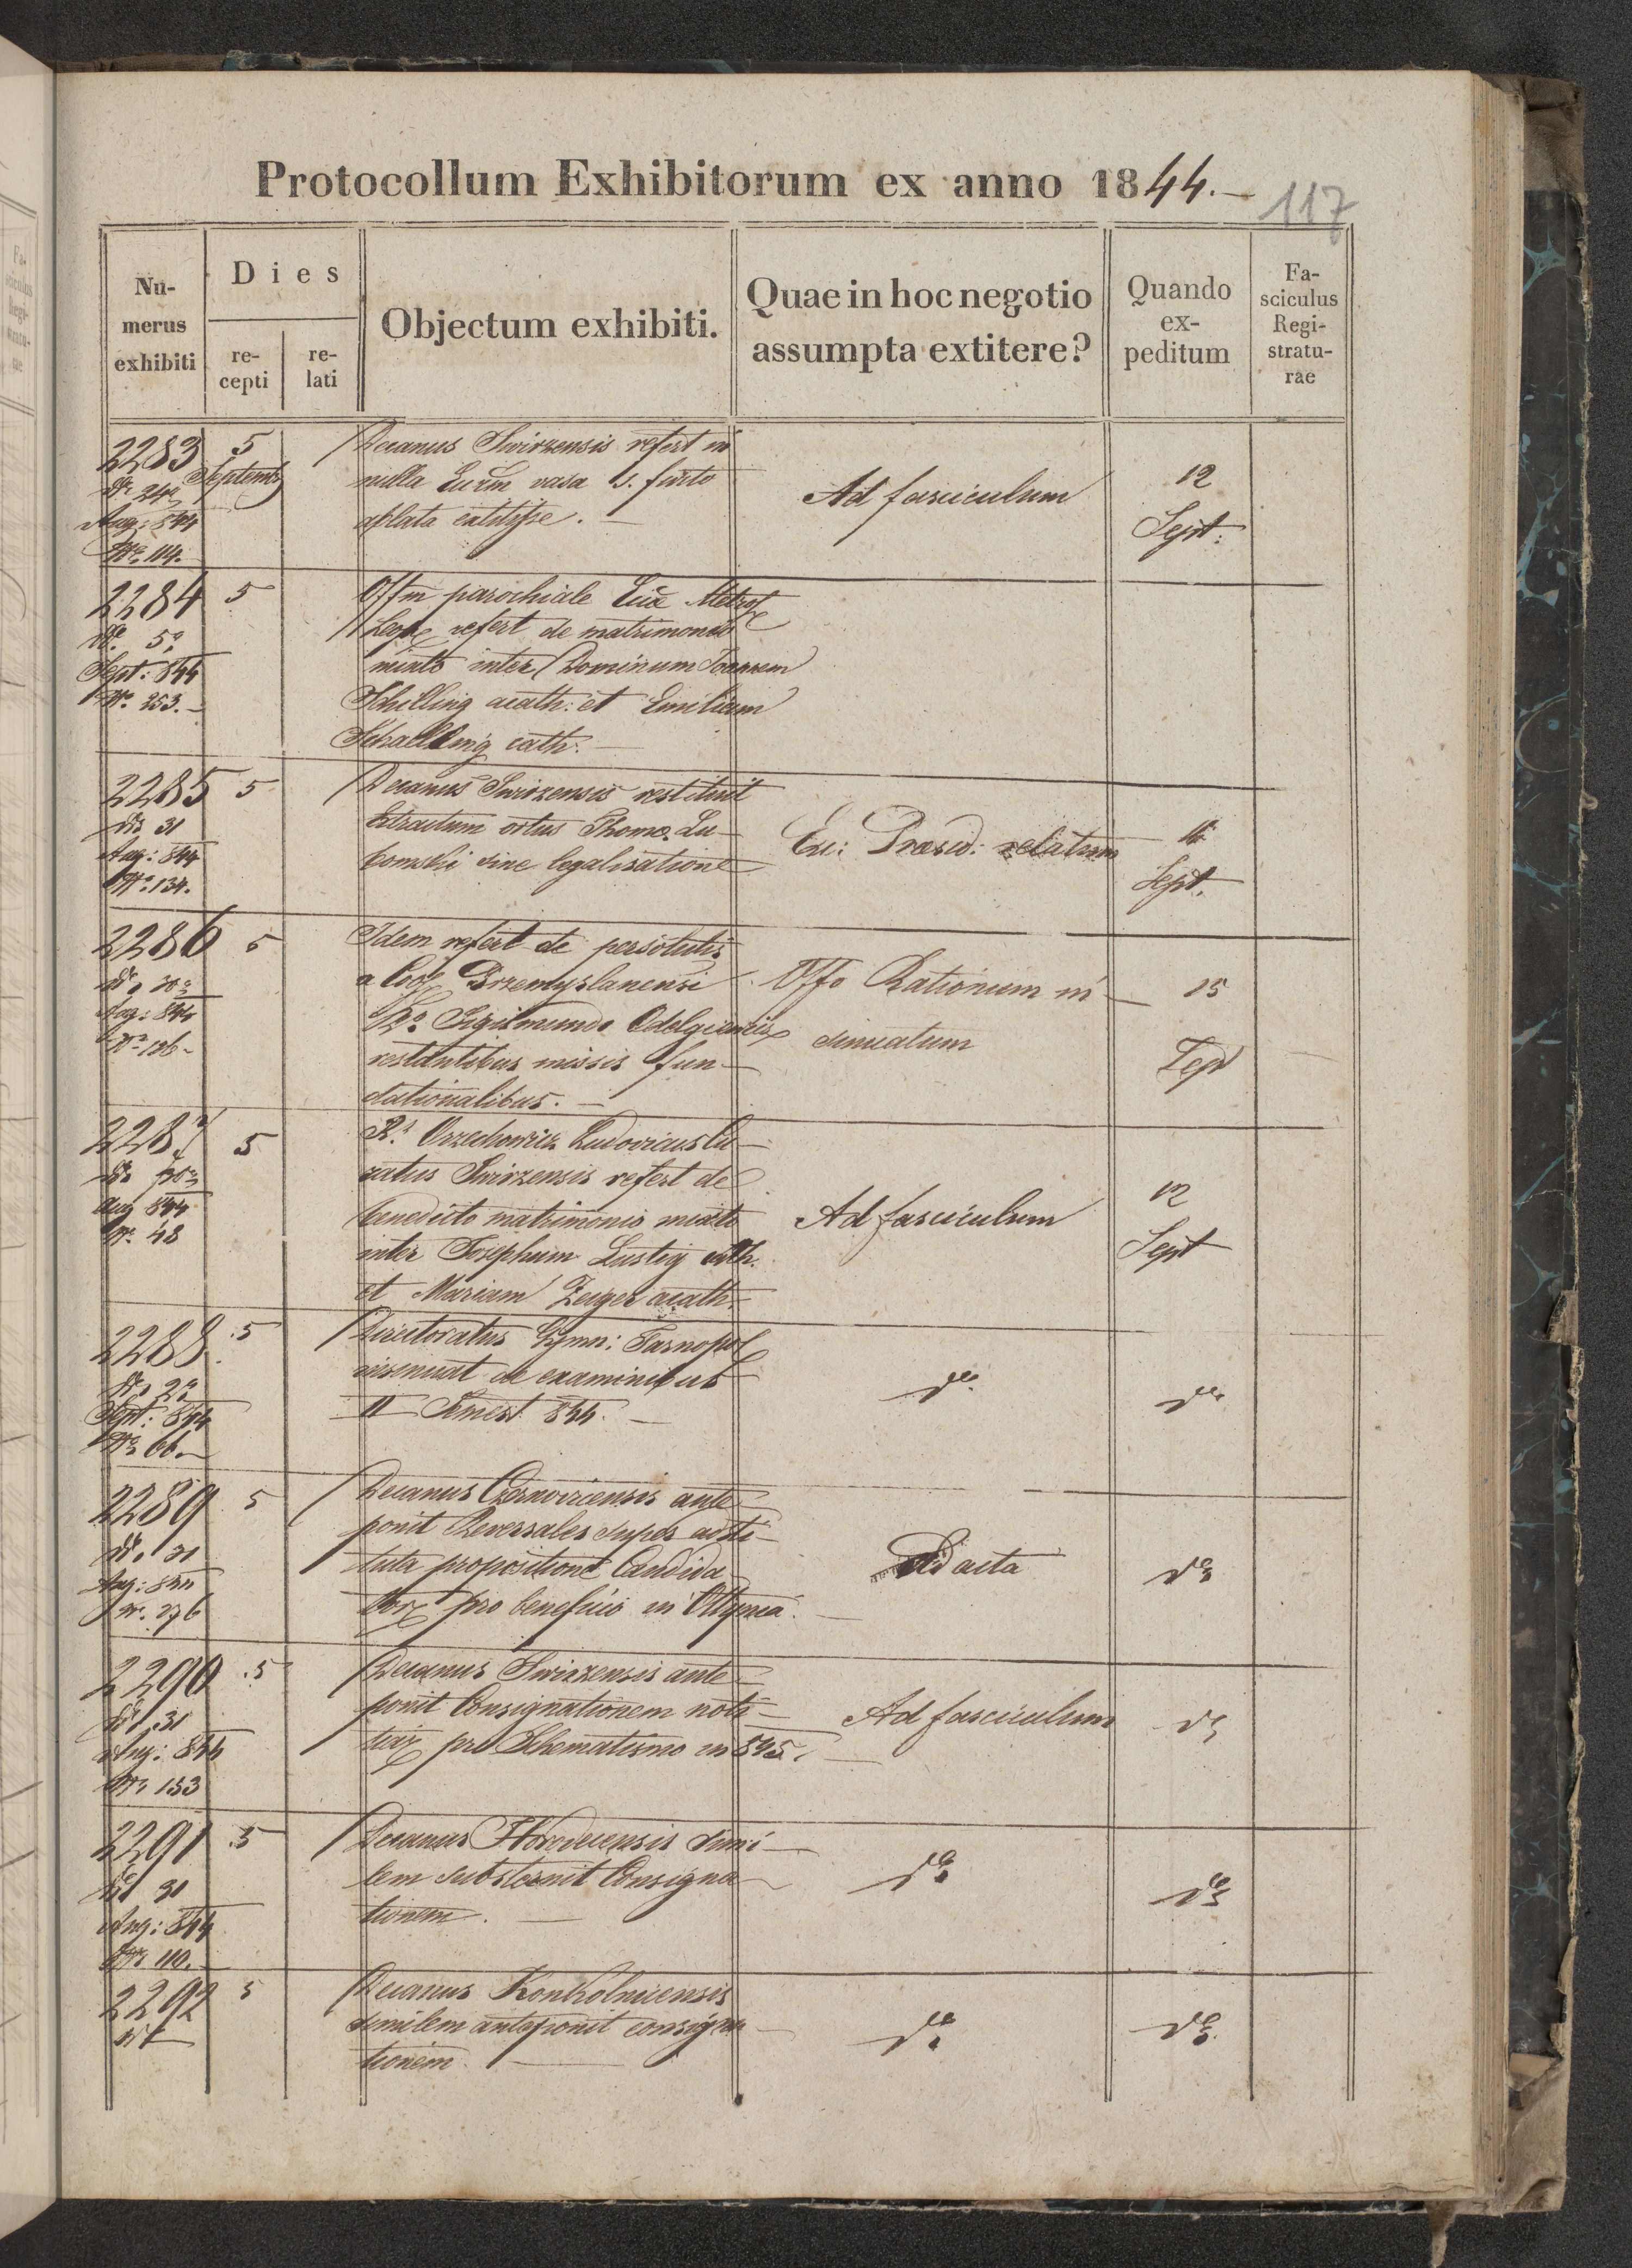 Protocollum Exhibitorum ex anno 1844.
117
Nu-
merus
exhibiti
Dies
re-
cepti
re-
lati
Objectum exhibiti.
Quae in hoc negotio
assumpta extitere?
Quando
ex-
peditum
Fa-
sciculus
Regi-
stratu-
rae
2283
5
Septemb
Aug: 844
Nº 114.
Decanus Swirzensis refert in
nulla vasa s. furto
ablata extitisse.
Ad fasciculum
12
Sept:
2284
5
5ª
Sept: 844
Nº 353.
parochiale Metrop
refert de matrimonio
mixto inter Dominum Joannem
Schilling acath: et Emiliam
cath:
2285
5
dtto 31
Aug: 844
Nº 134.
Decanus Swirzensis restituit
Extractum ortus Thomæ Lu-
komski sine legalisatione
Præsid: relatum
Sept.
2286
5
Aug: 844
Nº 126
Idem refert de persolutis
a Przemyslanensi
Sigismundo
restantibus missis fun-
dationalibus.
Offo Rationum in-
sinuatum
15
Sept
2287
5
Aug 844
Nº 48
R. Orzechowicz Ludovicus Cu-
ratus Swirzensis refert de
benedicto matrimonio mixto
inter Josephum Lustig cath.
et Mariam Zeiger acath.
Ad fasciculum
12
Sept
2288
5
2ª
Sept: 844
Nº 66.
Directoratus Gymn: Tarnopol
insinuat de examinibus
II Semest 844.
dto
dto
2289
5
dto 31
Aug: 844
Nr. 276
Decanus Czernovicensis ante-
ponit Reversales super
propositione Candida-
tor pro beneficio in Ottynia.
Ad acta
dto
2290
5
dto 31
Aug: 844
Nº 133
Decanus Swirzensis ante-
ponit Consignationem noti-
tiar pro Schematismo in 845.
Ad fasciculum
dto
2291
5
dto 31
Aug: 844
Nº 110.
Decanus Horodecensis simi-
lem substernit Consigna-
tionem.
dto
dto
2292
5
Decanus Konkolnicensis
similem anteponit consigna-
tionem.
dto
dto